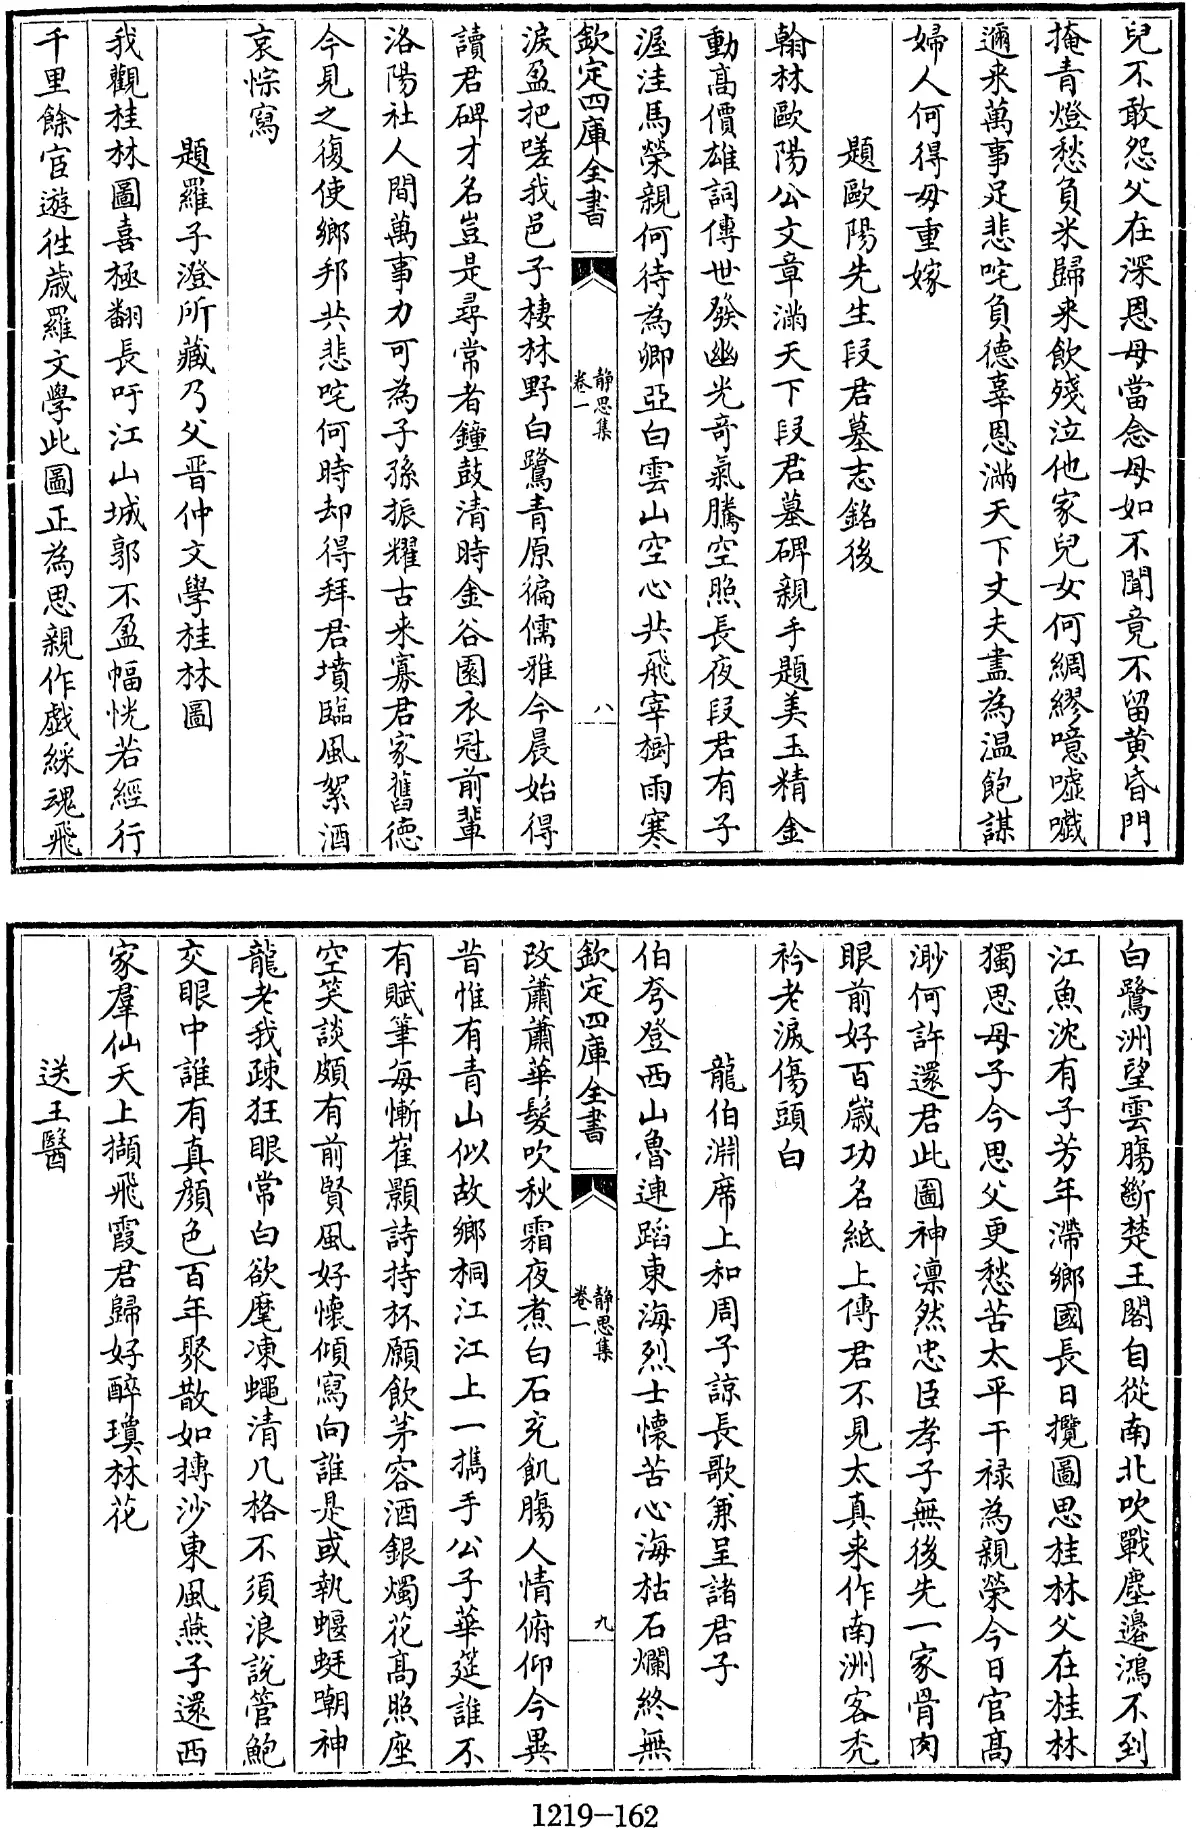 兒不敢怨父在深恩母當念母如不聞竟不留黄昏門
掩青燈愁負米歸来飲殘泣他家兒女何綢繆噫嘘嚱
邇来萬事足悲咤負德辜恩滿天下丈夫盡為温飽謀
婦人何得毋重嫁
題歐陽先生段君墓志銘後
翰林歐陽公文章滿天下段君墓碑親手題美玉精金
動高價雄詞傳世發幽光奇氣騰空照長夜段君有子
渥洼馬榮親何待為卿亞白雲山空心共飛宰樹雨寒
淚盈把嗟我邑子棲林野白鷺青原徧儒雅今晨始得
讀君碑才名豈是尋常者鐘鼓清時金谷園衣冠前輩
洛陽社人間萬事力可為子孫振耀古来寡君家舊德
今見之復使鄉邦共悲咤何時却得拜君墳臨風絮酒
哀悰寫
題羅子澄所藏乃父晋仲文學桂林圖
我觀桂林圖喜極翻長吁江山城郭不盈幅恍若經行
千里餘宦遊徃歲羅文學此圖正為思親作戲綵魂飛
欽定四庫全書
静思集
卷一
八
白鷺洲望雲腸斷楚王閣自從南北吹戰塵邊鴻不到
江魚沈有子芳年滯鄉國長日攬圖思桂林父在桂林
獨思母子今思父更愁苦太平干禄為親榮今日官高
渺何許還君此圖神凛然忠臣孝子無後先一家骨肉
眼前好百歲功名紙上傳君不見太真来作南洲客禿
衿老淚傷頭白
龍伯淵席上和周子諒長歌兼呈諸君子
伯夸登西山魯連蹈東海烈士懷苦心海枯石爛終無
改蕭蕭華髮吹秋霜夜煮白石充飢腸人情俯仰今異
昔惟有青山似故鄉桐江江上一携手公子華筵誰不
有賦筆每慚崔顥詩持杯願飲茅容酒銀燭花高照座
空笑談頗有前賢風好懷傾寫向誰是或執蝘蜓嘲神
龍老我疎狂眼常白欲麾凍蠅清几格不須浪說管鮑
交眼中誰有真顔色百年聚散如摶沙東風燕子還西
家羣仙天上擷飛霞君歸好醉瓊林花
送王醫
欽定四庫全書
静思集
卷一
九
1219-162